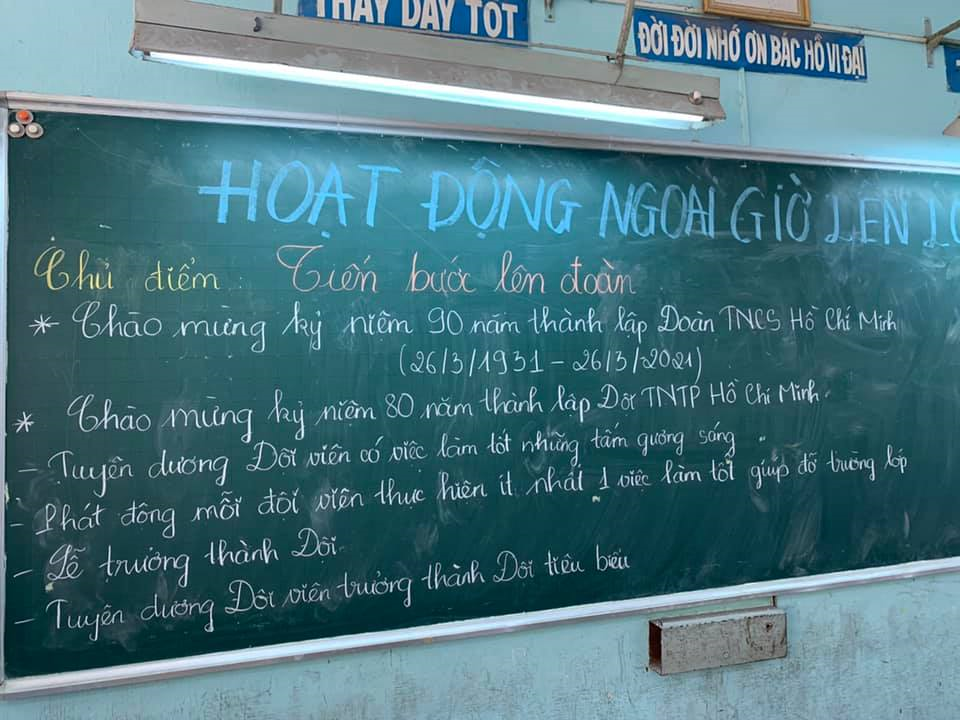 THẦY DẠY TỐT
ĐỜI ĐỜI NHỚ ƠN BÁC HỒ VĨ ĐẠI
HOẠT ĐỘNG NGOÀI GIỜ LÊN LỚ
Chủ điểm: Tiến bước lên đoàn
* Chào mừng kỷ niệm 90 năm thành lập Đoàn TNCS Hồ Chí Minh
(26/3/1931 - 26/3/2021)
* Chào mừng kỷ niệm 80 năm thành lập Đội TNTP Hồ Chí Minh.
- Tuyên dương Đội viên có việc làm tốt những tấm gương sáng
- Phát động mỗi đội viên thực hiện ít nhất 1 việc làm tốt giúp đỡ trường lớp
- Lễ trưởng thành Đội.
- Tuyên dương Đội viên trưởng thành Đội tiêu biểu